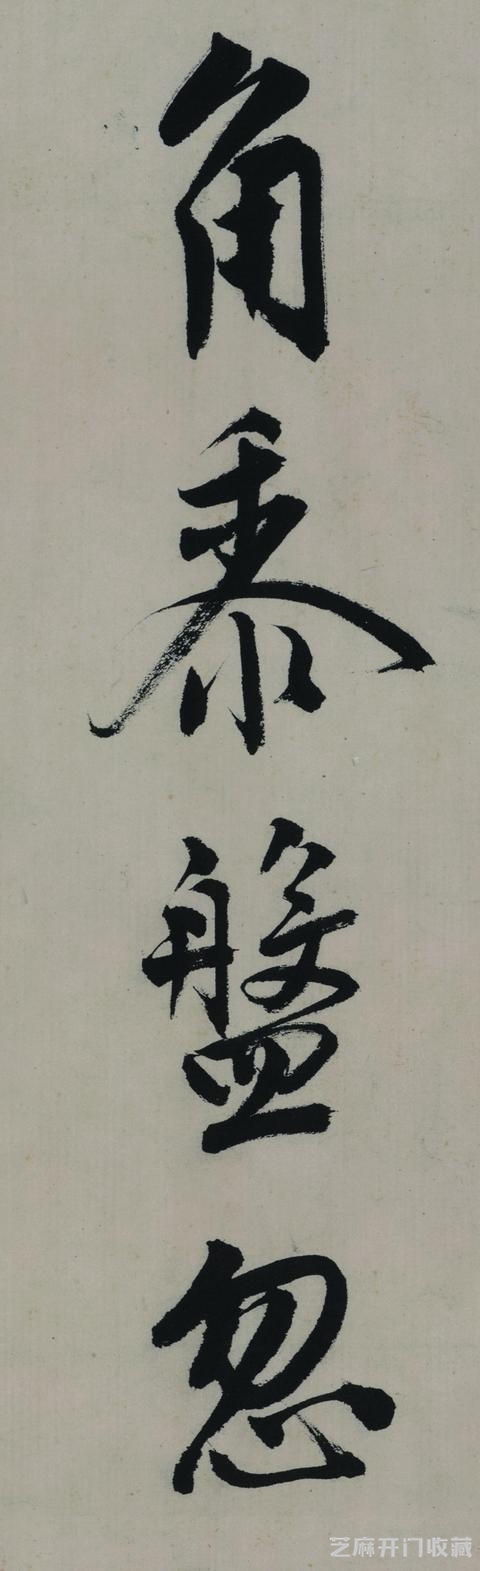 角黍盤忽
芝麻开门收藏